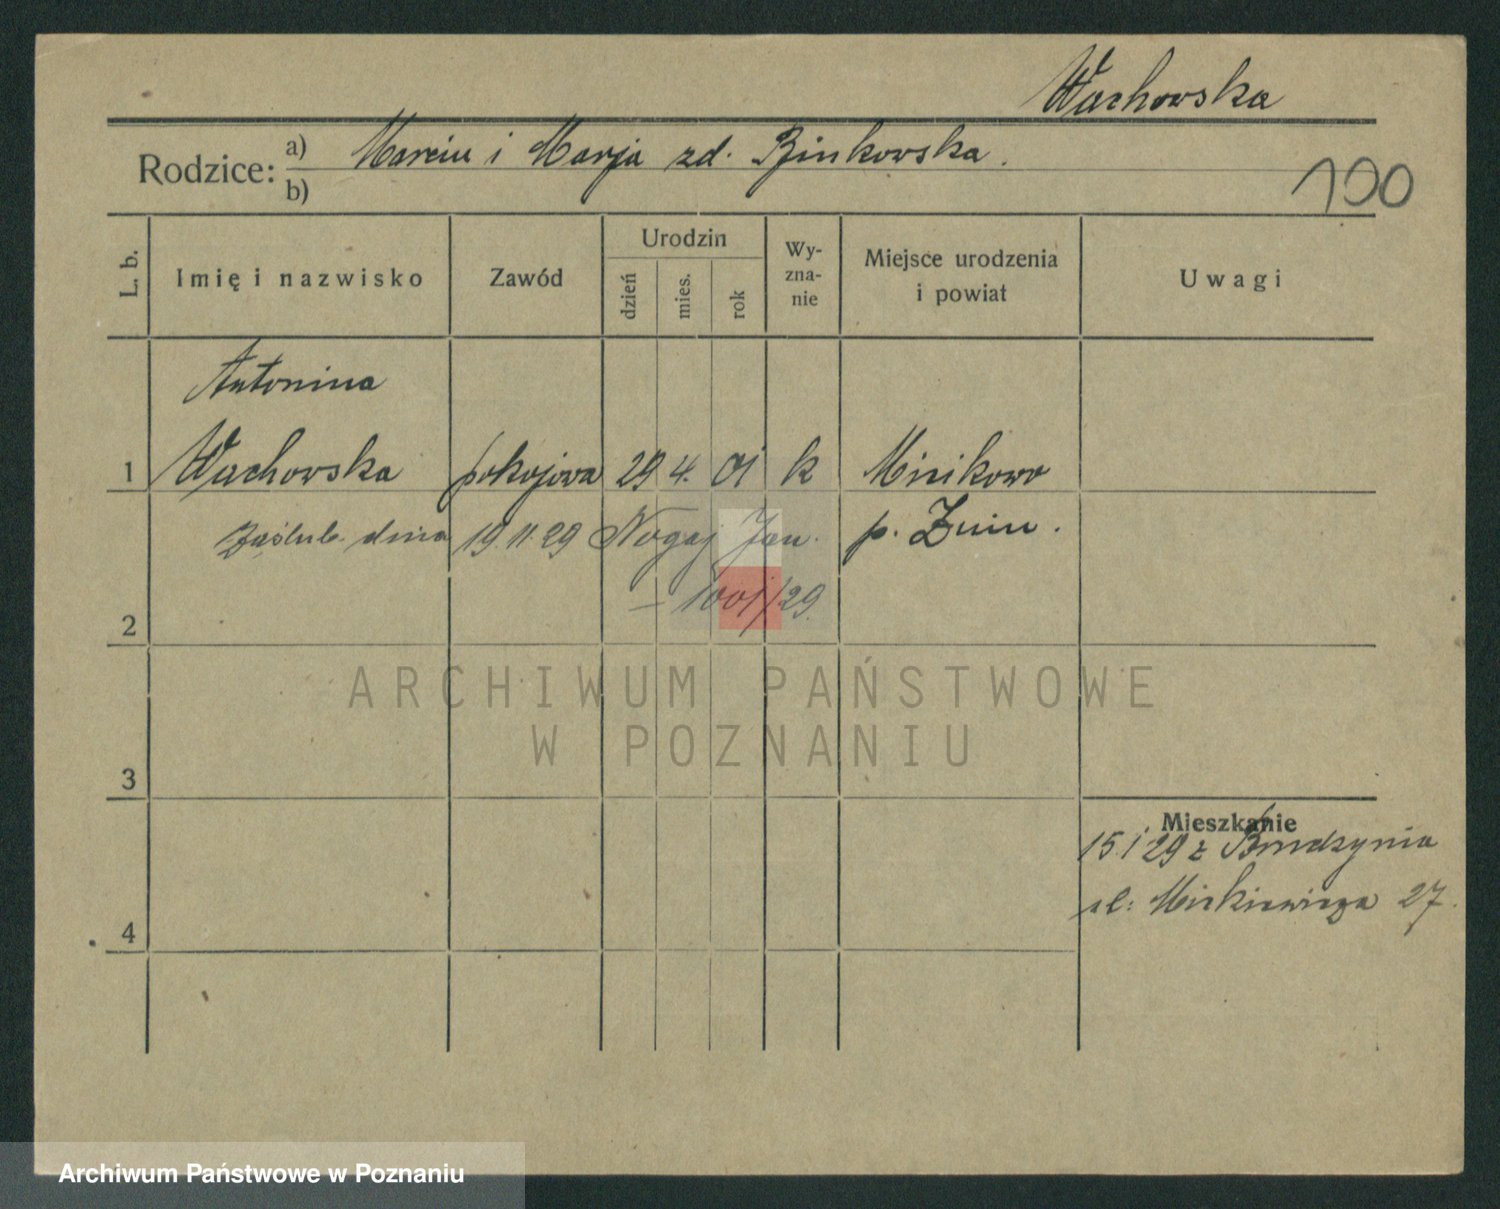 Wachowska
Rodzice: a) Marcin i Marja zd. Binkowska.
b)
100
L. b.
Imię i nazwisko
Zawód
Urodzin
dzień
mies.
rok
Wy-
zna-
nie
Miejsce urodzenia
i powiat
Uwagi
Antonina
1 Wachowska pokojowa 29 4. 01 k
zaślub. dnia 19.11.29 Nogaj Jan. p. Żnin.
– 1001/29.
2
ARCHIWUM PAŃSTWOWE
W POZNANIU
3
Mieszkanie
15.1 29 z
ul: Mickiewicza 27.
4
Archiwum Państwowe w Poznaniu